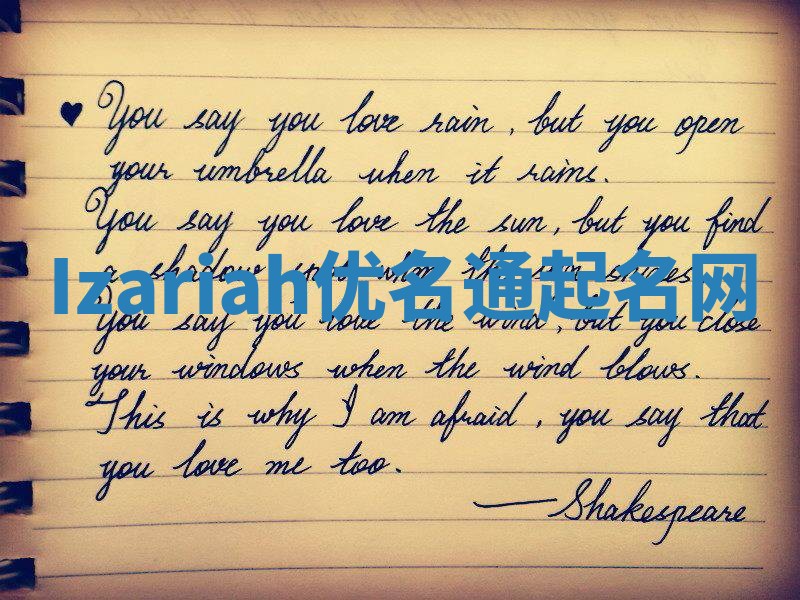 ♥ You say you love rain, but you open
your umbrella when it rains.
You say you love the sun, but you find
a shadow spot when the sun shines
Izariah优名通起名网
You say you love the wind, but you close
your windows when the wind blows.
This is why I am afraid, you say that
you love me too.
— Shakespeare